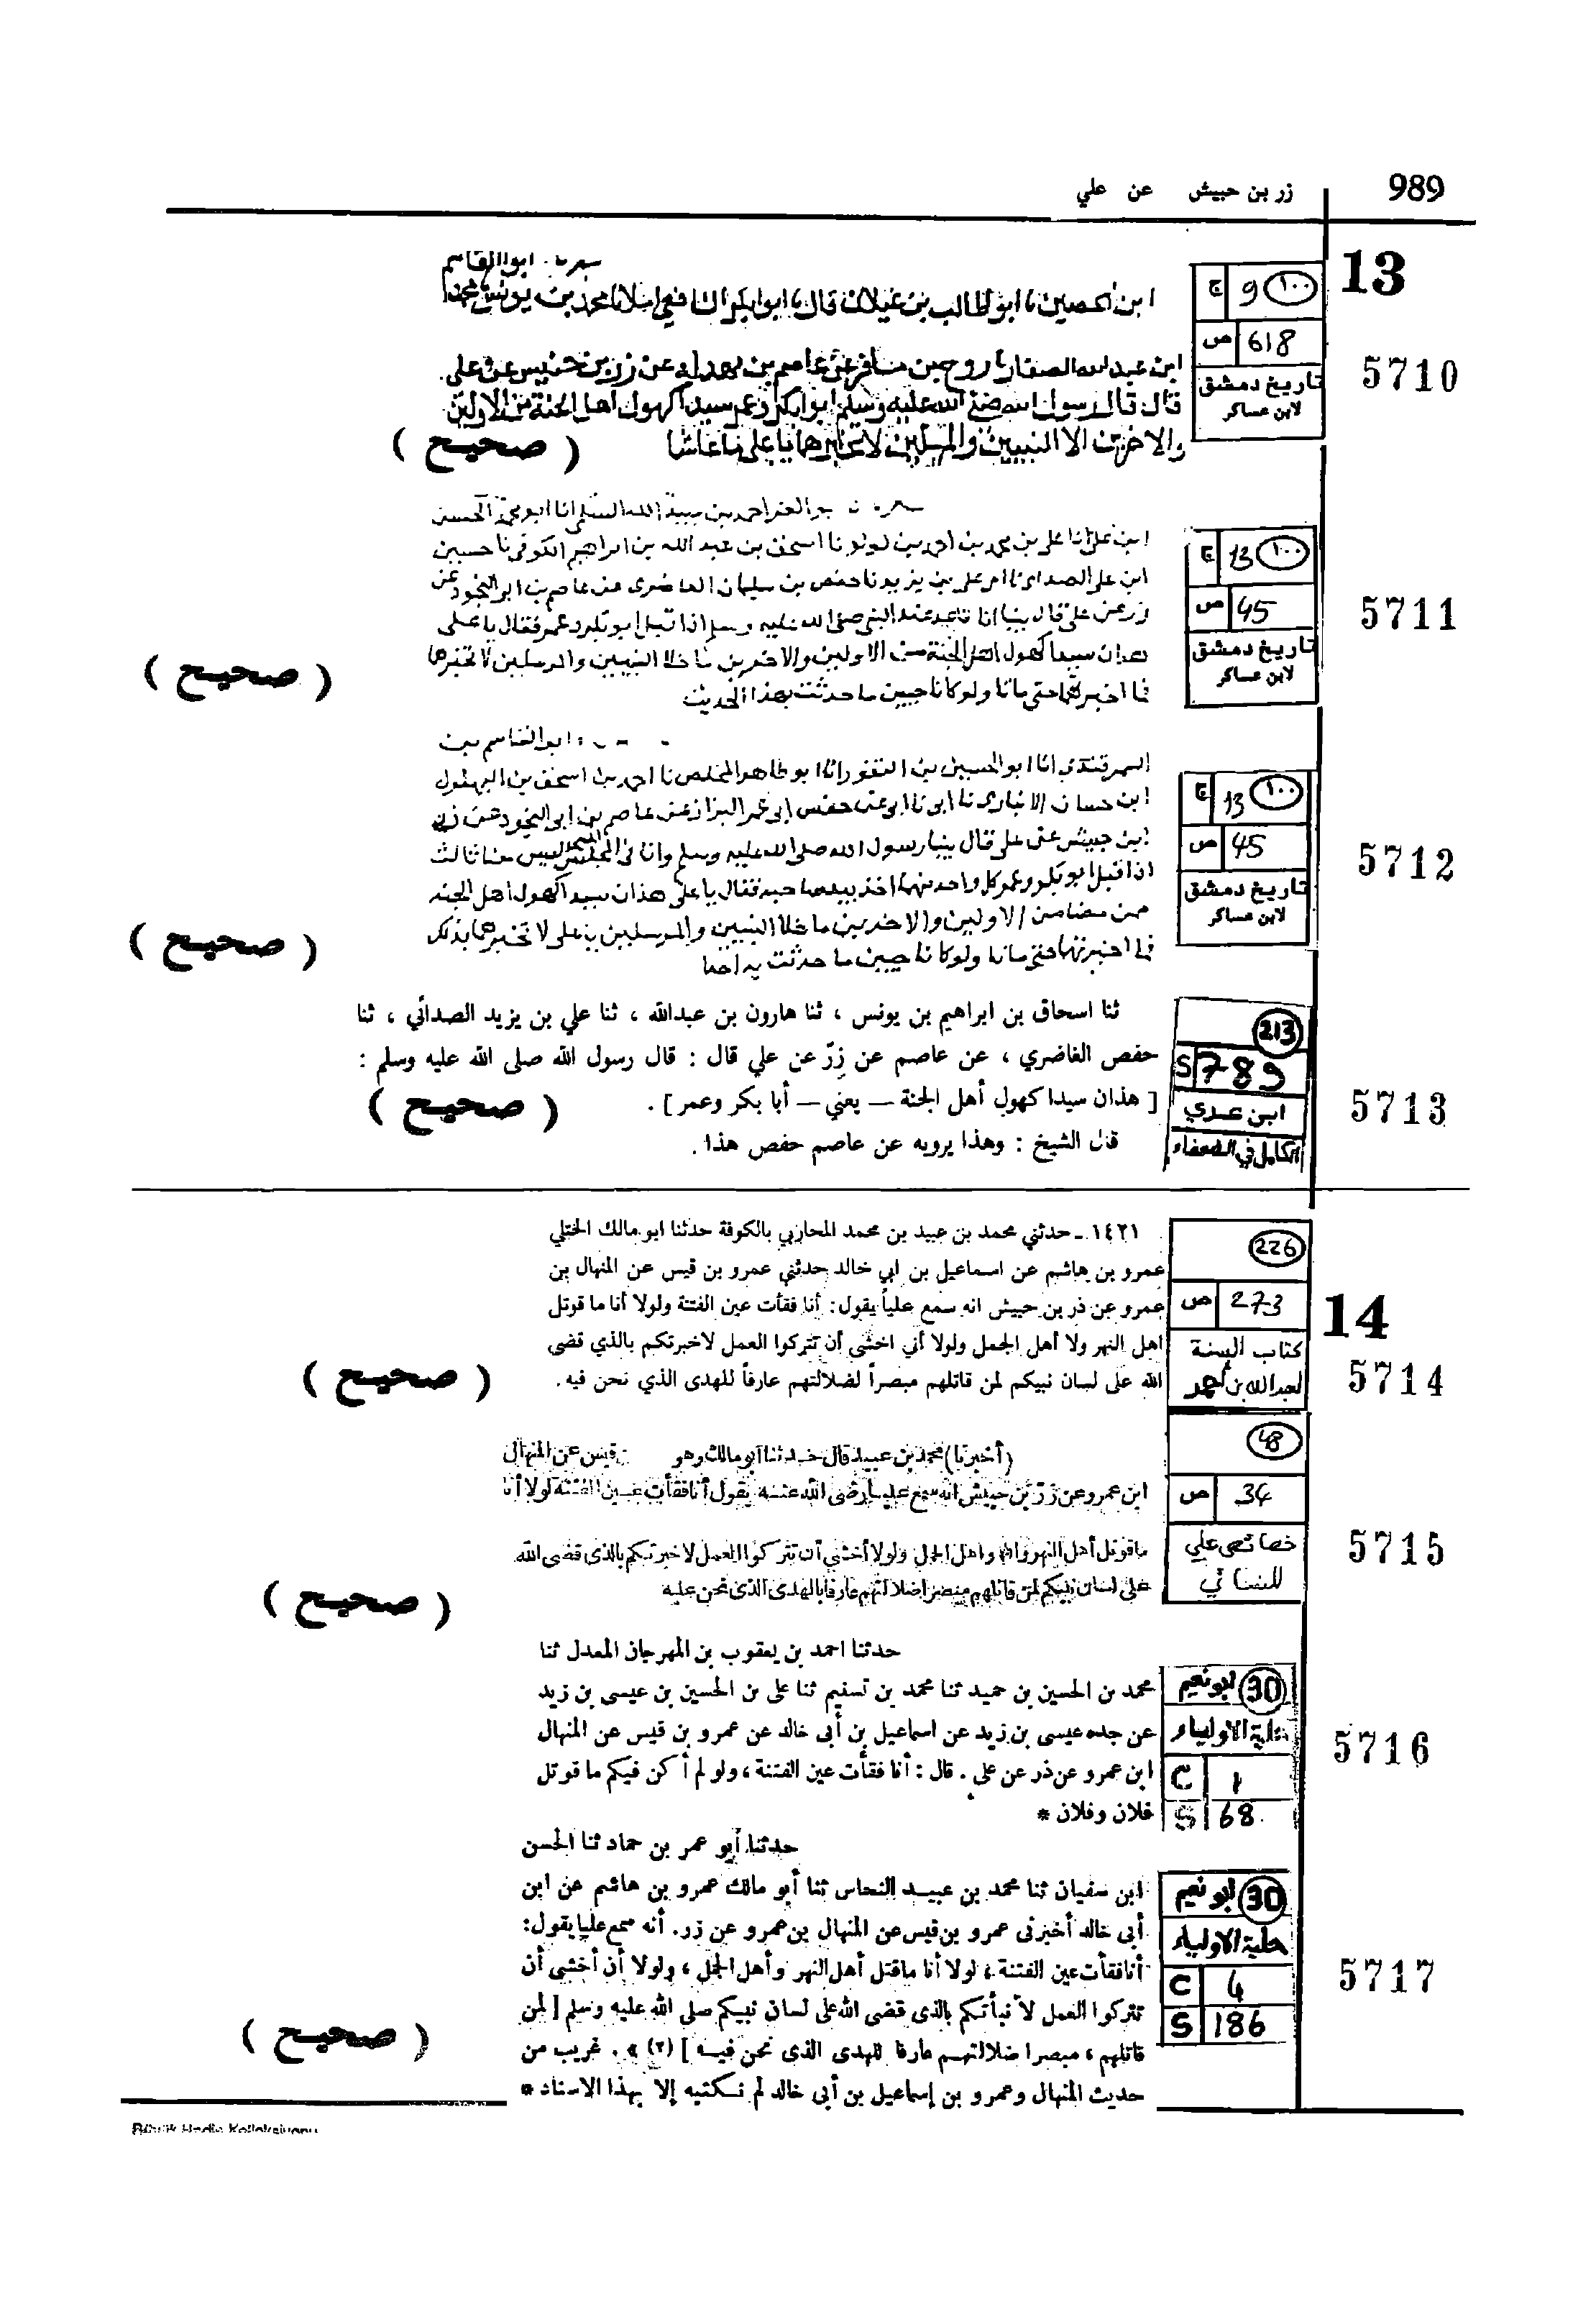 989
زر بن حبيش عن علي
13
ج 9 ١٠٠
ص 618
تاريخ دمشق
لابن عساكر
5710
ابوالقاسم
ابن الحصين نا ابو طالب بن غيلان قال نا ابو بكر الشافعي املانا محمد بن يونس نا محمد
ابن عبد الله الصفار نا روح بن مسافر عن عاصم بن بهدله عن زر بن حبيش عن علي
قال قال رسول الله صلى الله عليه وسلم ابو بكر وعمر سيدا كهول اهل الجنة من الاولين
والاخرين الا النبيين والمرسلين لا تخبرهما يا علي ما عاشا
( صحيح )
ج 13 ١٠٠
ص 45
تاريخ دمشق
لابن عساكر
5711
احمد بن عبيد الله السلمي انا ابو محمد الحسن
ابن علي انا علي بن محمد بن احمد بن لولو نا اسحق بن عبد الله بن ابراهيم الكوفي نا حسين
ابن علي الصدائي نا علي بن يزيد نا حفص بن سليمان الغاضري عن عاصم بن ابي النجود عن
زر عن علي قال بينا انا قاعد عند النبي صلى الله عليه وسلم اذا قبل ابو بكر وعمر فقال يا علي
هذان سيدا كهول اهل الجنة من الاولين والاخرين ما خلا النبيين والمرسلين لا تخبرهما
فما اخبرتهما حتى ماتا ولو كانا حيين ما حدثت بهذا الحديث
( صحيح )
ج 13 ١٠٠
ص 45
تاريخ دمشق
لابن عساكر
5712
ابو القاسم بن
السمرقندي انا ابو الحسين بن النقور انا ابو طاهر المخلص نا احمد بن اسحق بن البهلول
ابن حسان الانباري نا ابي نا ابي عن حفص ابي عمر البزاز عن عاصم بن ابي النجود عن زر
ابن حبيش عن علي قال بينا رسول الله صلى الله عليه وسلم وانا في المجلس ليس معنا ثالث
اذا قبل ابو بكر وعمر كل واحد منهما اخذ بيد صاحبه فقال يا علي هذان سيدا كهول اهل الجنة
ممن مضا من الاولين والاخرين ما خلا النبيين والمرسلين يا علي لا تخبرهما بذلك
فما اخبرتهما حتى ماتا ولو كانا حيين ما حدثت به احدا
( صحيح )
213
S 789
ابن عدي
الكامل في الضعفاء
5713
ثنا اسحاق بن ابراهيم بن يونس ، ثنا هارون بن عبدالله ، ثنا علي بن يزيد الصدائي ، ثنا
حفص الغاضري ، عن عاصم عن زرّ عن علي قال : قال رسول الله صلى الله عليه وسلم :
[ هذان سيدا كهول أهل الجنة – يعني – أبا بكر وعمر ] .
( صحيح )
قال الشيخ : وهذا يرويه عن عاصم حفص هذا .
226
ص 273
كتاب السنة
لعبدالله بن أحمد
14
5714
١٤٢١ - حدثني محمد بن عبيد بن محمد المحاربي بالكوفة حدثنا ابو مالك الختلي
عمرو بن هاشم عن اسماعيل بن ابي خالد حدثني عمرو بن قيس عن المنهال بن
عمرو عن ذر بن حبيش انه سمع علياً يقول: أنا فقأت عين الفتنة ولولا أنا ما قوتل
اهل النهر ولا أهل الجمل ولولا أني اخشى أن تتركوا العمل لاخبرتكم بالذي قضى
الله على لسان نبيكم لمن قاتلهم مبصراً لضلالتهم عارفاً للهدى الذي نحن فيه .
( صحيح )
48
ص 34
خصائص علي
للنسائي
5715
(أخبرنا) محمد بن عبيد قال حدثنا أبو مالك وهو بن قيس عن المنهال
ابن عمرو عن زر بن حبيش انه سمع عليا رضى الله عنه يقول أنا فقأت عين الفتنة لولا أنا
ما قوتل أهل النهروان وأهل الجمل ولولا أخشى أن تتركوا العمل لاخبرتكم بالذى قضى الله
على لسان نبيكم لمن قاتلهم مبصرا ضلالتهم عارفا بالهدى الذى نحن عليه
( صحيح )
30 ابو نعيم
حلية الاولياء
C ١
S 68
5716
حدثنا احمد بن يعقوب بن المهرجان المعدل ثنا
محمد بن الحسين بن حميد ثنا محمد بن تسنيم ثنا على بن الحسين بن عيسى بن زيد
عن جده عيسى بن زيد عن اسماعيل بن أبى خالد عن عمرو بن قيس عن المنهال
ابن عمرو عن ذر عن على . قال : أنا فقأت عين الفتنة ، ولو لم أكن فيكم ما قوتل
فلان وفلان *
30 ابو نعيم
حلية الاولياء
C 4
S 186
5717
حدثنا أبو عمر بن حماد ثنا الحسن
ابن سفيان ثنا محمد بن عبيد النحاس ثنا أبو مالك عمرو بن هاشم عن ابن
أبى خالد أخبرنى عمرو بن قيس عن المنهال بن عمرو عن زر . أنه سمع عليا يقول :
أنا فقأت عين الفتنة ، لولا أنا ما قتل أهل النهر وأهل الجمل ، ولولا أن أخشى أن
تتركوا العمل لأنبأتكم بالذى قضى الله على لسان نبيكم صلى الله عليه وسلم [ لمن
قاتلهم ، مبصرا ضلالتهم عارفا للهدى الذى نحن فيه ] (٢) » . غريب من
حديث المنهال وعمرو بن إسماعيل بن أبى خالد لم نكتبه إلا بهذا الاسناد *
( صحيح )